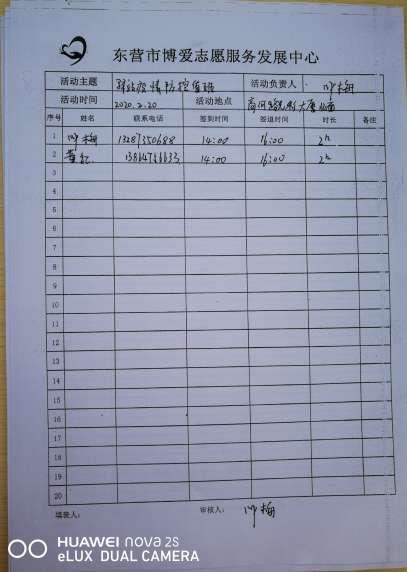 东营市博爱志愿服务发展中心
活动主题 疫情防控值班 活动负责人
活动时间 2020.2.20 活动地点
序号 姓名 联系电话 签到时间 签退时间 时长 备注
1 13287350688 14:00 16:00 2h
2 14:00 16:00 2h
3
4
5
6
7
8
9
10
11
12
13
14
15
16
17
18
19
20
填表人： 审核人：
HUAWEI nova 2s
eLUX DUAL CAMERA